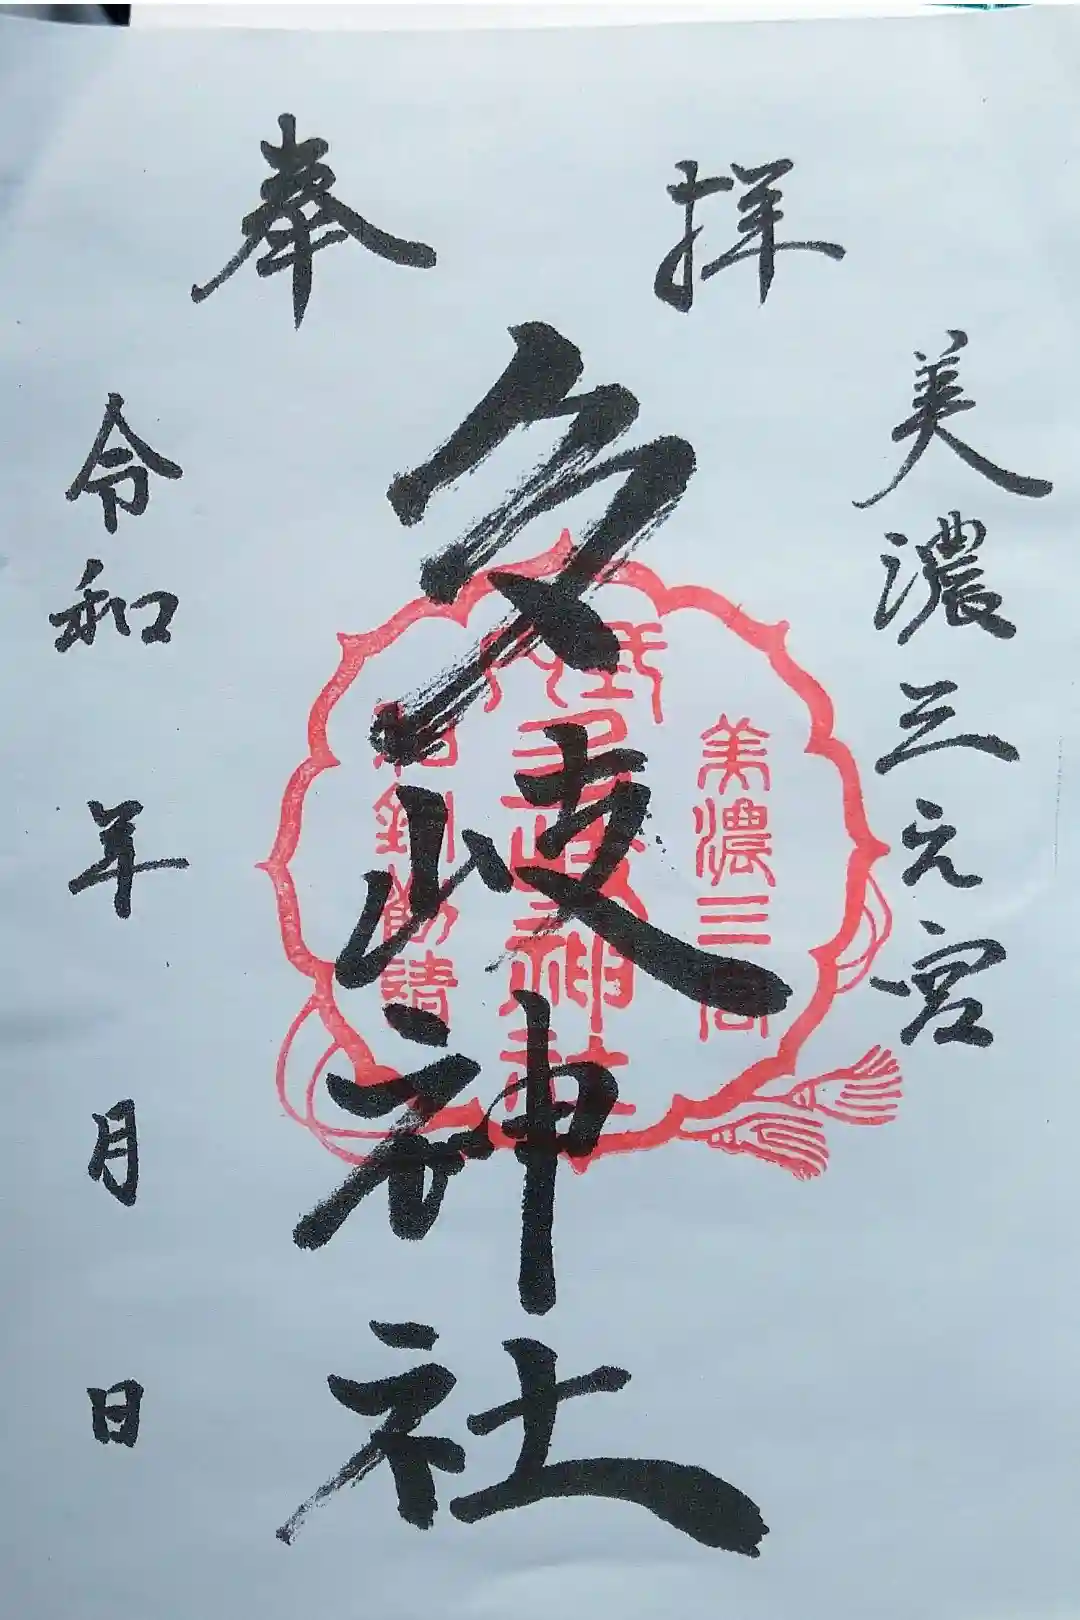 奉拝
美濃三之宮
多岐神社
令和 年 月 日
美濃三宮
式内
多岐神社
和銅勧請